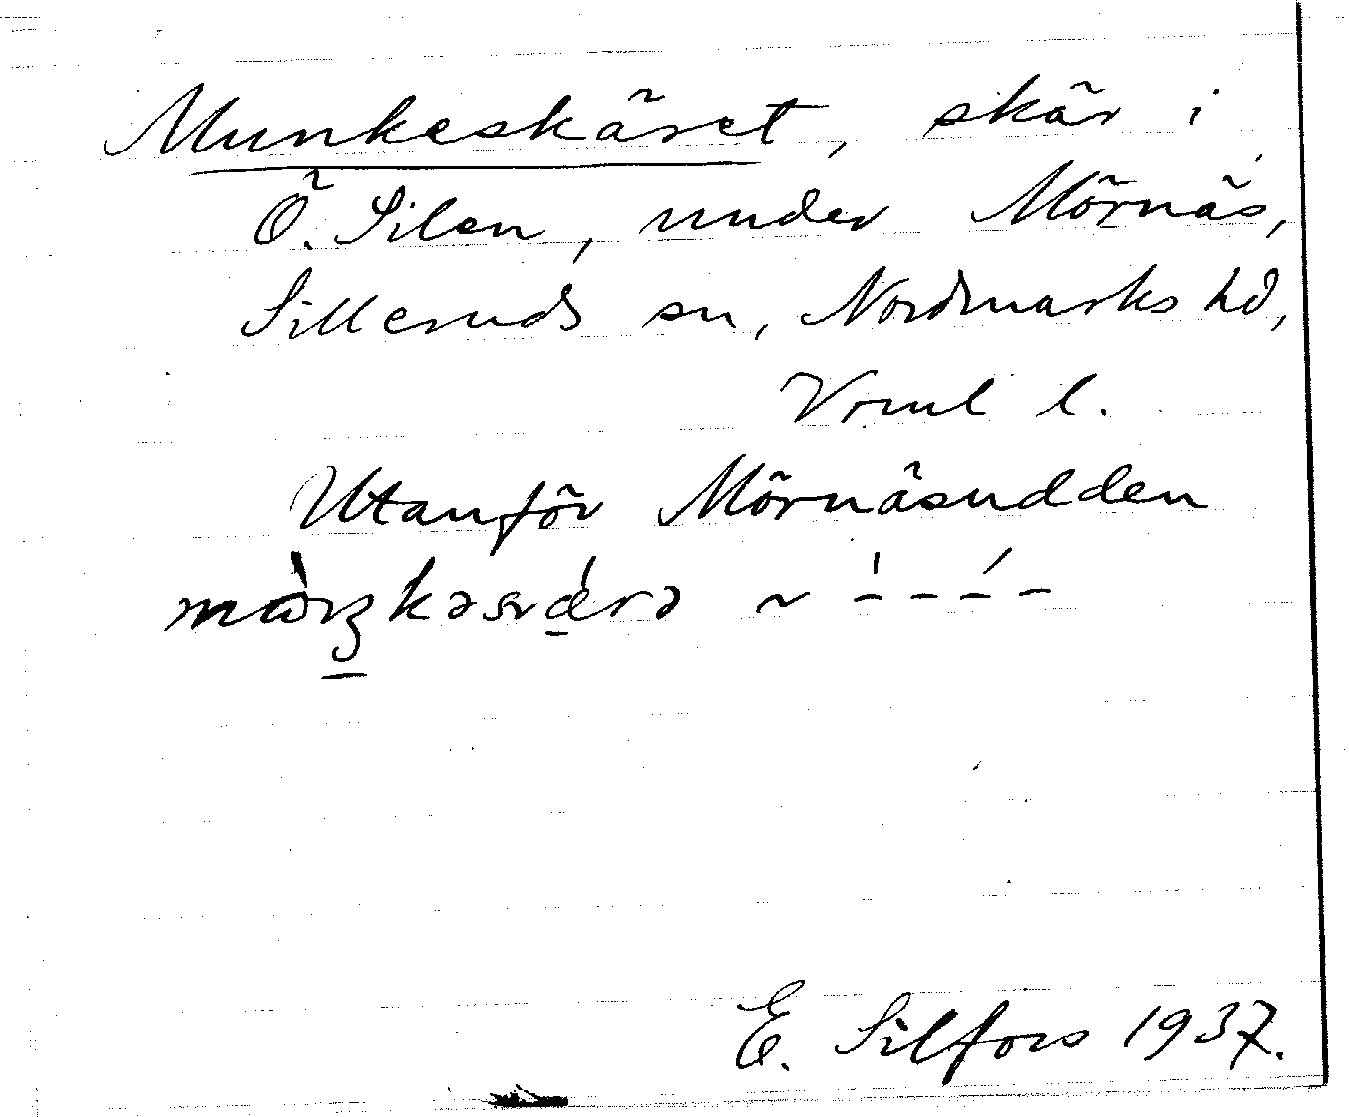 Munkeskäret, skär i
Ö. Silen, under Mörnäs,
Silleruds sn, Nordmarks hd,
Vrml l.
Utanför Mörnäsudden
E. Silfors 1937.